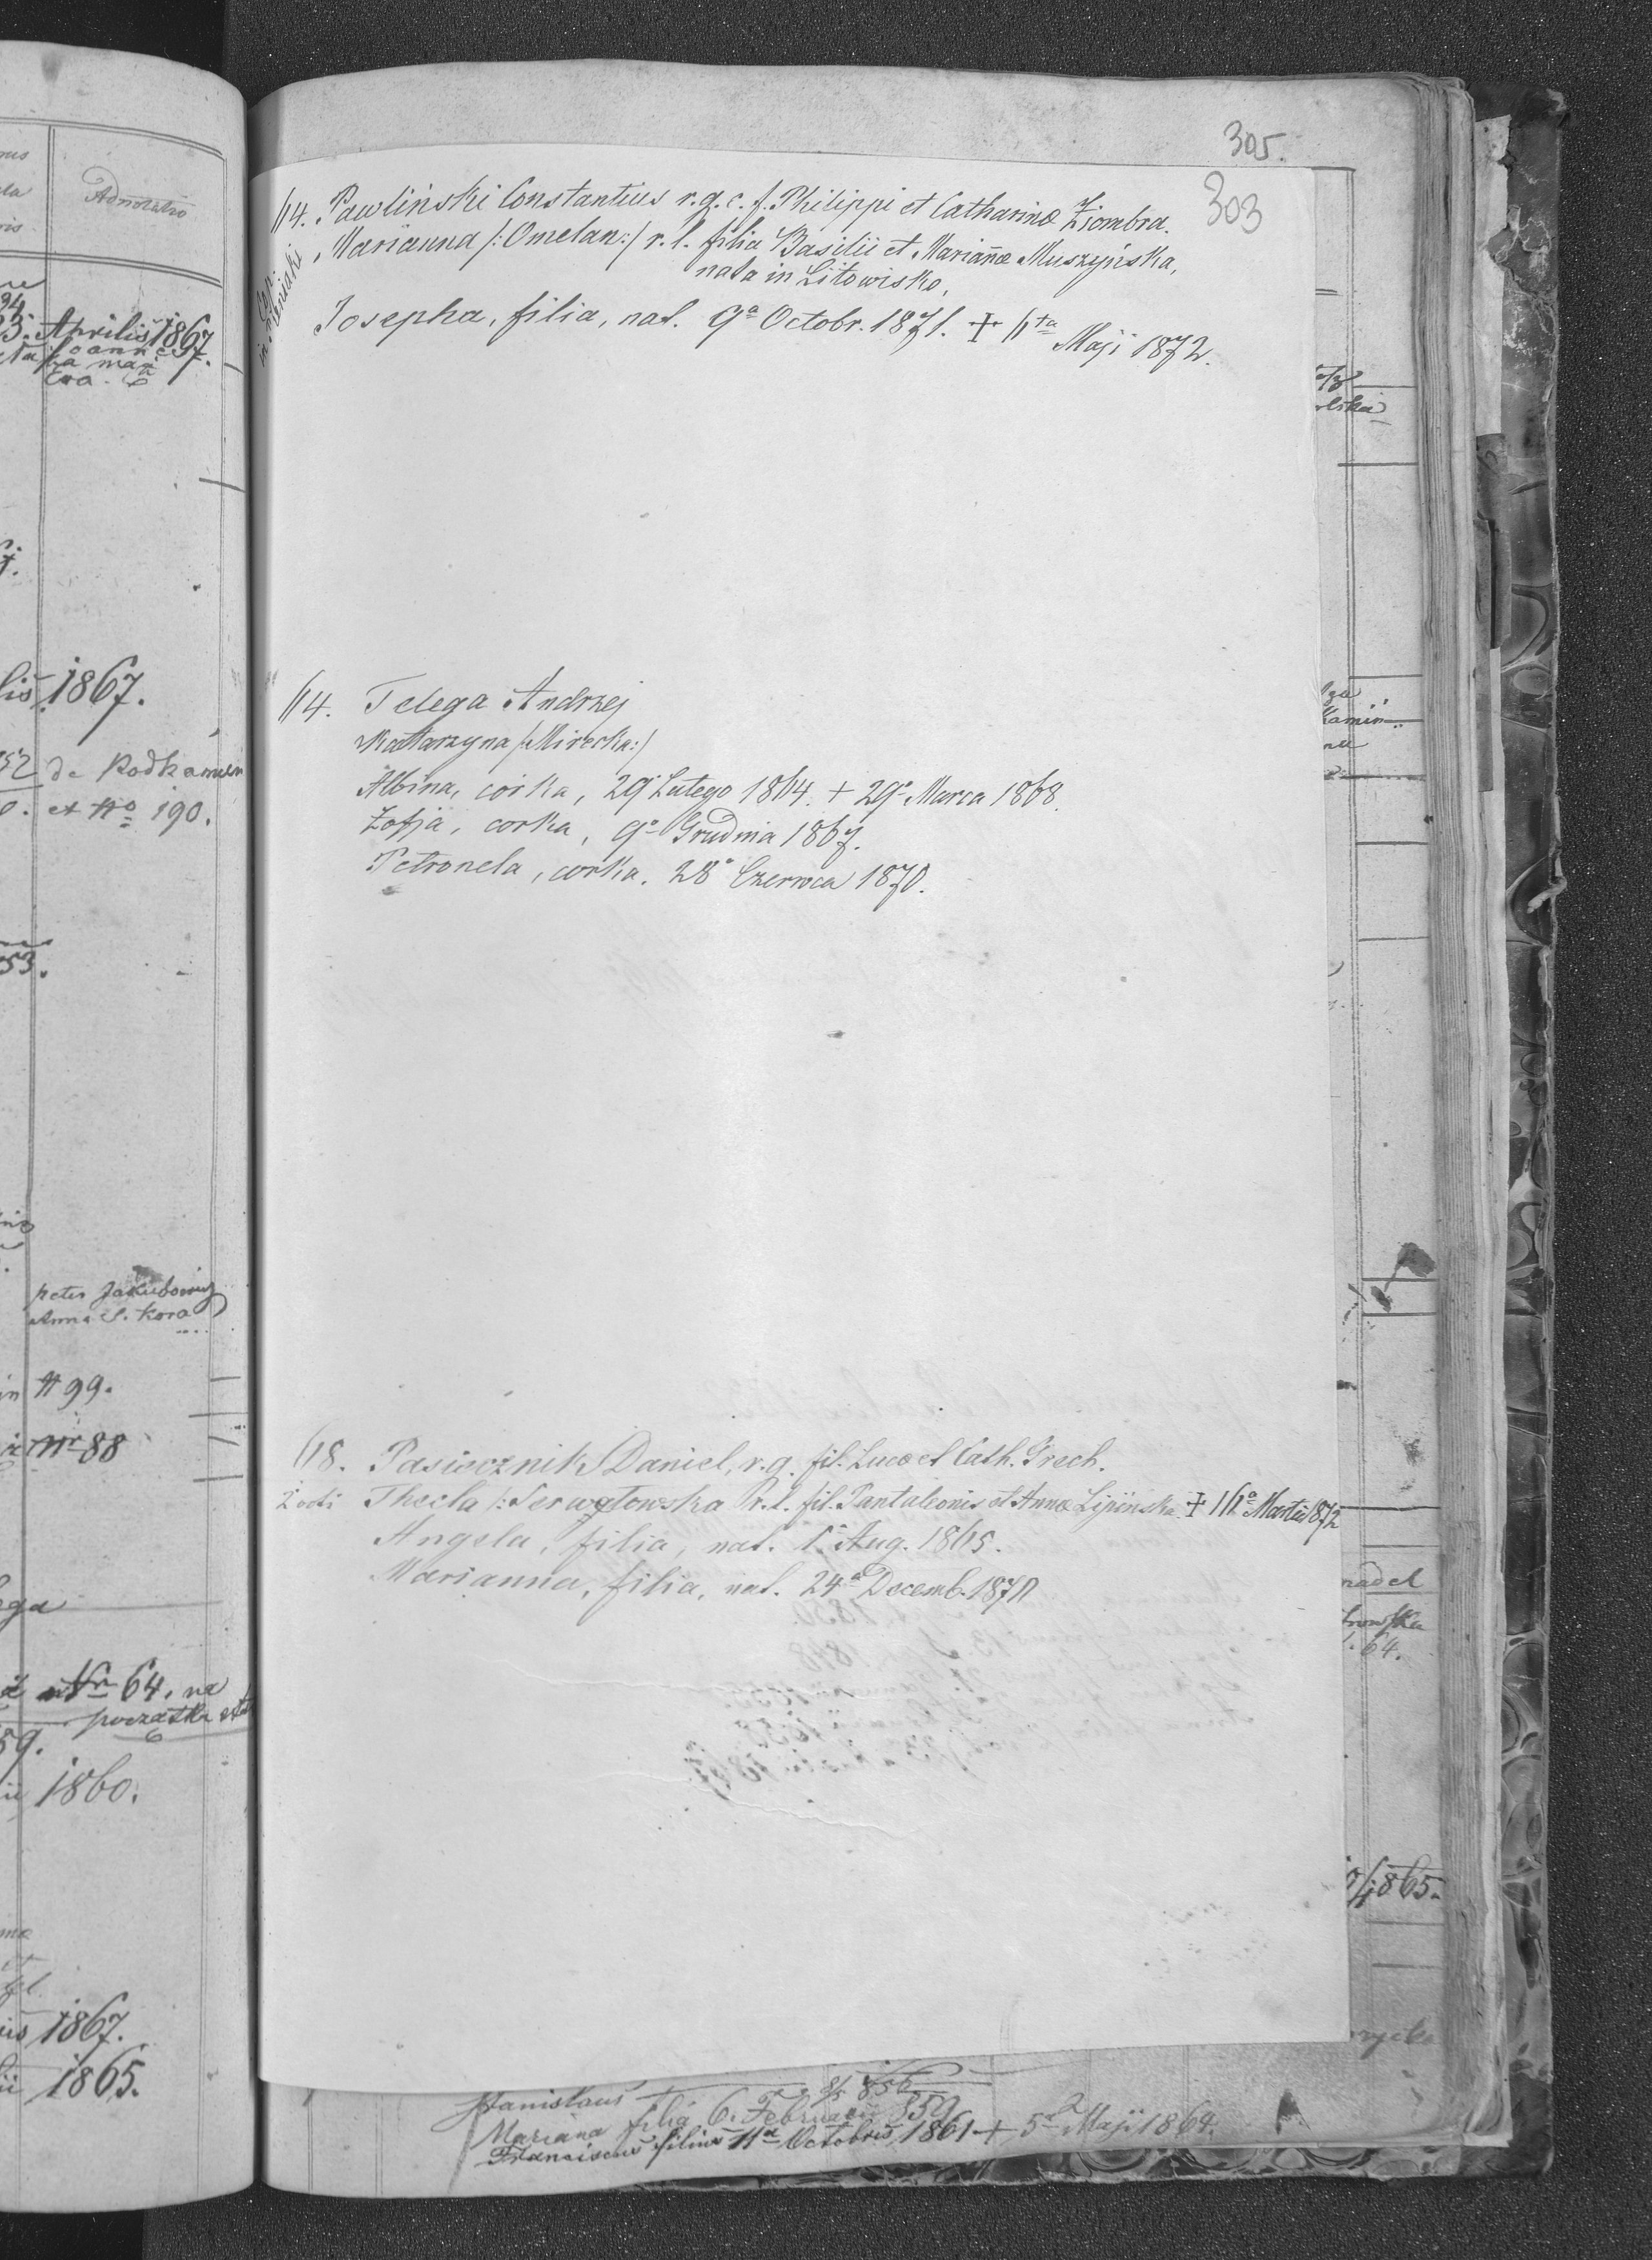 305.
303
64. Pawliński Constantius r. g. c. f. Philippi et Catharinæ Ziombra.
Marianna /:Omelan:/ r. l. filia Basilii et Mariañæ Muszyńska,
nata in Litowisko,
Josepha, filia, nat. 9ª Octobr. 1871. + 6ta Maji 1872.
64. Telega Andrzej
Katarzyna /:Mirecka:/
Albina, córka, 29° Lutego 1864. + 29° Marca 1868.
Zofja, corka, 9° Grudnia 1867.
Petronela, corka. 28° Czerwca 1870.
68. Pasiecznik Daniel, r. g. fil. Lucæ et Cath. Grech.
Thecla /: Serwatowska r. l. fil. Pantaleonis et Annæ Lipińska + 16ª Martii 1872
Angela, filia, nat. 1ª Aug. 1865.
Marianna, filia, nat. 24ª Decemb. 1870
Stanislaus 856
Mariana filia 6. Februarii 859
Franciscus filius 11ª Octobris 1861 + 5ª Maji 1864.
Adnotatio
Aprilis 1867.
1867.
de Podkamien
et No 190.
53.
peter Jakubowicz
Anna S. Kora
in # 99.
Nr 88
Nr 64. na
początku
59.
1860.
1867.
1865.
nadel
64.
1865.